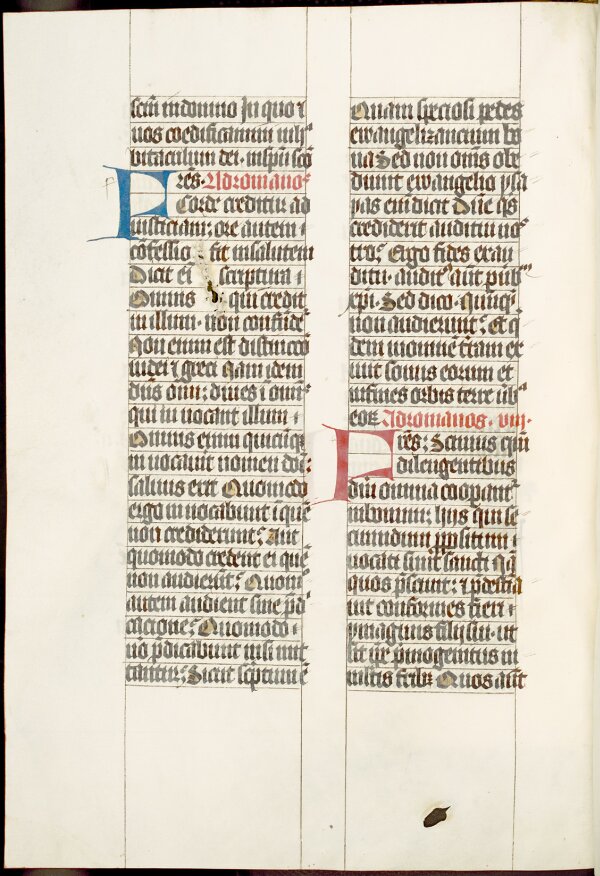 sctm̄ in domino In quo ⁊
uos coedificamini in ha
bitaculum dei · in sp̄u sc̄o
Fres · Ad romanos
Corde creditur ad
iusticiam : ore autem
cōfessio fit in salutem
Dicit em̄ scriptura
Omnis qui credit
in illum · non confūde
Non enim est distinccō
iudei ⁊ greci Nam idem
dn̄s oīm : diues ī om̄s
qui in uocant illum
Omnis enim quicūq̄
in uocauit nomen dn̄i :
saluus erit Quomodo
ergo in uocabunt ī quē
non crediderunt : Aut
quomodo credent ei quē
non audierūt : Quomō
autem audient sine p̄d
cacione : Quomodo
uo p̄dicabunt nisi mit
tantur : Sicut sc̄ptum ē
Quam speciosi pedes
ewangelizancium bo
na Sed non om̄s obe
diunt ewangelio ysa
yas em̄ dicit Dn̄e q̄s
crediderit auditui nr̄o
Ergo fides ex au
ditu · audit᷒ aūt p ub᷒
xp̄i · Sed dico · nūq̄
non audierunt : et q̄
dem in omnē terram ex
iuit sonus eorum et
in fines orbis terre ūb᷒
eoꝝ Ad romanos · viii ·
Fres : Scimus qm̄
diligentibus
dm̄ omnia coopant᷒
in bonum : hijs qui se
cundum p̄positum
uocati sunt sancti Nā
quos p̄sciuit : ⁊ p̄destīa
uit conformes fieri
ymaginis filij sui · ut
sit ip̄e p̄mogenitus in
multis fr̄ibꝫ Quos aūt